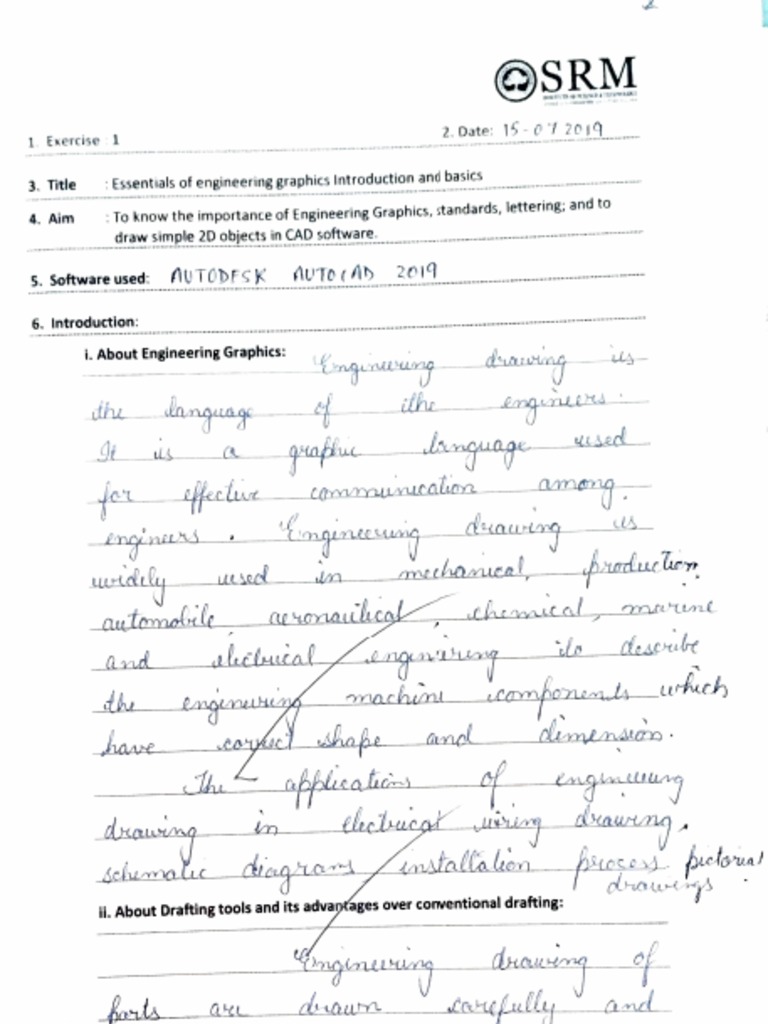 SRM
1. Exercise : 1
2. Date: 15-07 2019
3. Title : Essentials of engineering graphics Introduction and basics
4. Aim : To know the importance of Engineering Graphics, standards, lettering; and to
draw simple 2D objects in CAD software.
5. Software used: AUTODESK AUTOCAD 2019
6. Introduction:
i. About Engineering Graphics: Engineering drawing is
the language of the engineers.
It is a graphic language used
for effective communication among
engineers. Engineering drawing is
widely used in mechanical, production
automobile, aeronautical, chemical, marine
and electrical engineering to describe
the engineering machine components which
have correct shape and dimension.
The applications of engineering
drawing in electrical wiring drawing,
schematic diagrams installation process pictorial
drawings
ii. About Drafting tools and its advantages over conventional drafting:
Engineering drawing of
parts are drawn carefully and